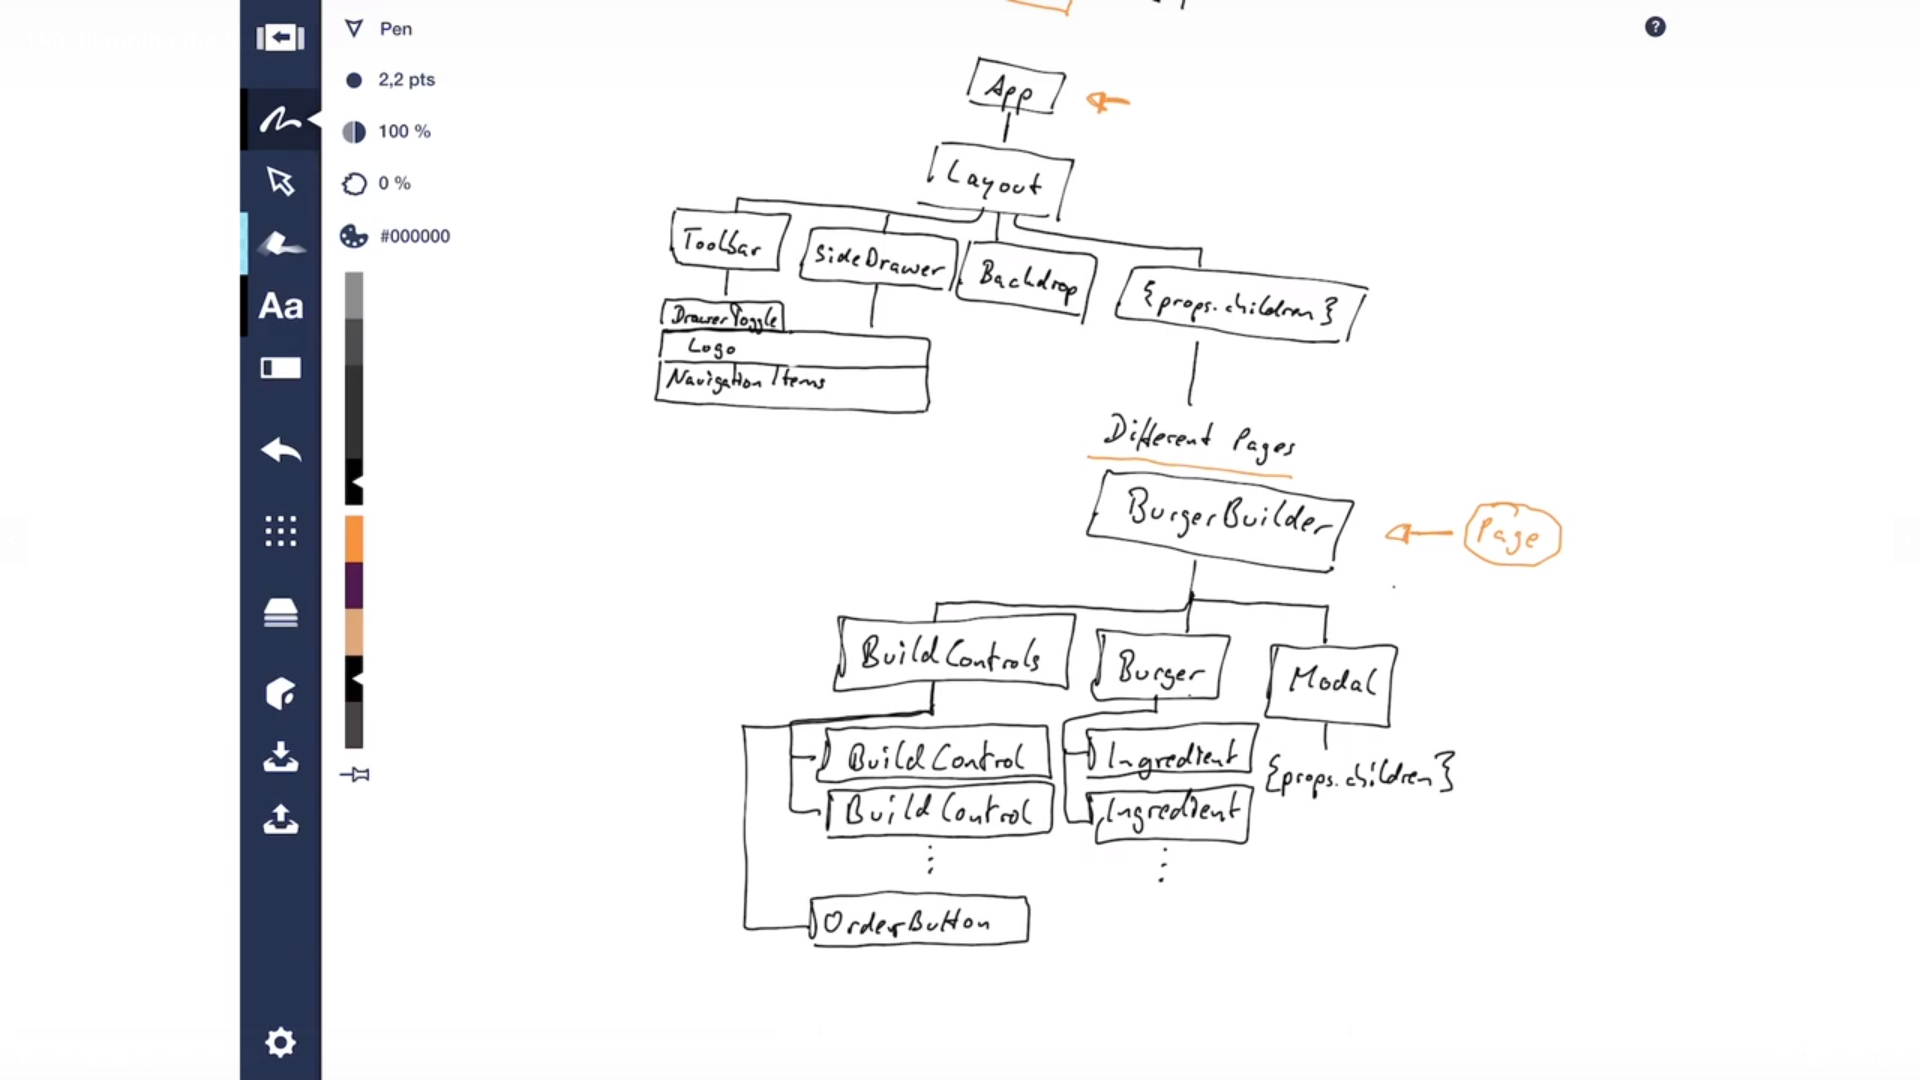 Pen
2,2 pts
100 %
0 %
#000000
Aa
?
App
Layout
Toolbar
SideDrawer
Backdrop
{props.children}
DrawerToggle
Logo
Navigation Items
Different Pages
BurgerBuilder
Page
BuildControls
Burger
Modal
BuildControl
Ingredient
{props.children}
BuildControl
Ingredient
OrderButton